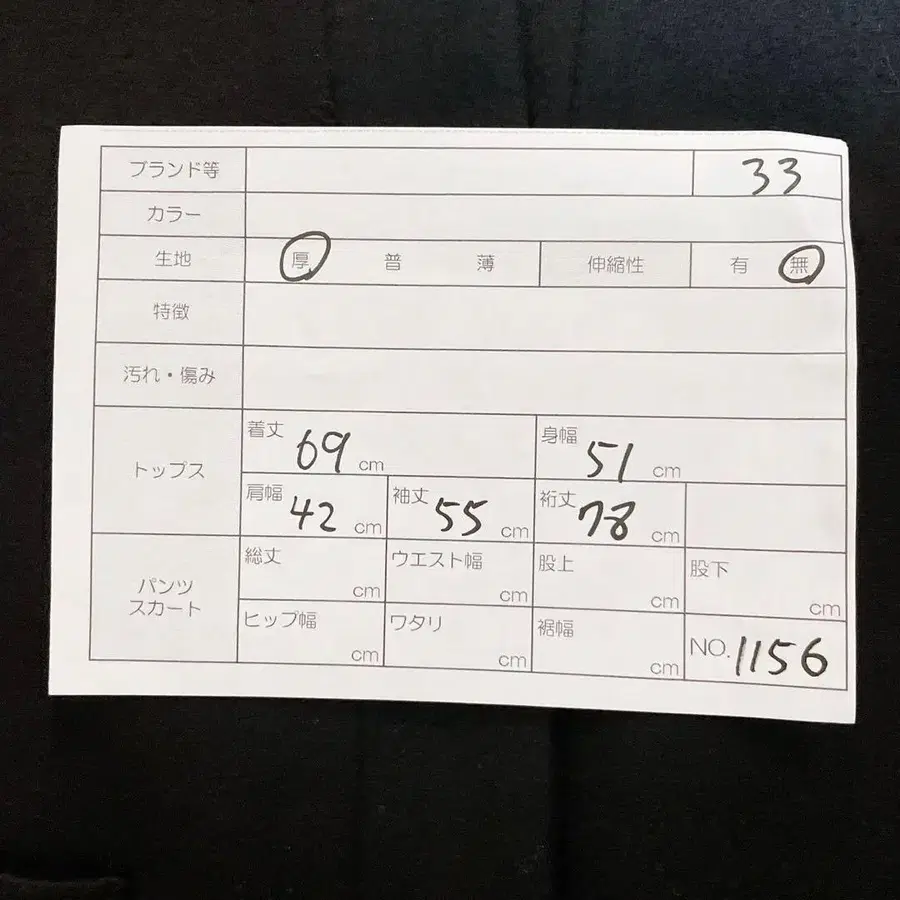 ブランド等 33
カラー
生地 厚 普 薄 伸縮性 有 無
特徴
汚れ・傷み
トップス
着丈 69 cm 身幅 51 cm
肩幅 42 cm 袖丈 55 cm 裄丈 78 cm
パンツ
スカート
総丈 cm ウエスト幅 cm 股上 cm 股下 cm
ヒップ幅 cm ワタリ cm 裾幅 cm NO. 1156